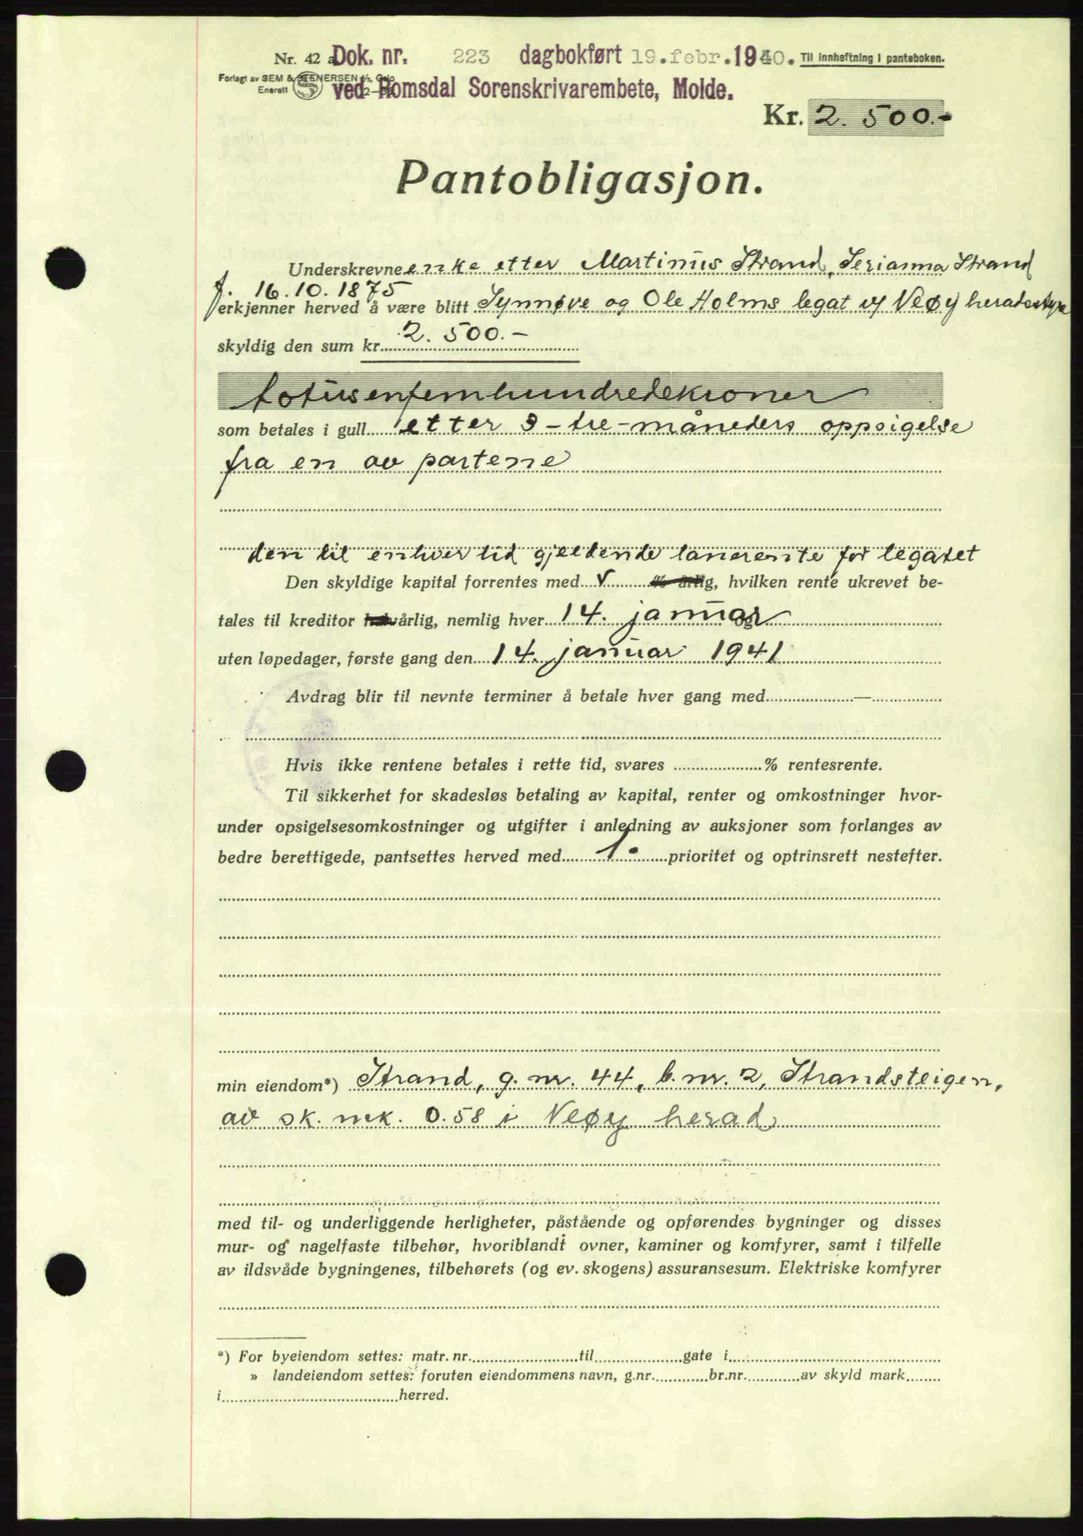 Nr. 42 a Dok. nr. 223 dagbokført 19.febr.1940. Til innheftning i panteboken.
Forlagt av SEM & STENERSEN A/S, Oslo
Enerett
ved Romsdal Sorenskrivarembete, Molde.
Kr. 2.500.-
Pantobligasjon.
Underskrevne enke etter Martinus Strand, Serianna Strand
f. 16.10.1875
erkjenner herved å være blitt Synnøve og Ole Holms legat v/ Veøy heradsstyre
skyldig den sum kr. 2.500.-
totusenfemhundredekroner
som betales i gull etter 3-tre-måneders oppsigelse
fra en av partene
den til enhver tid gjeldende lånerente for legatet
Den skyldige kapital forrentes med % årlig, hvilken rente ukrevet be-
tales til kreditor halvårlig, nemlig hver 14. januar og
uten løpedager, første gang den 14. januar 1941
Avdrag blir til nevnte terminer å betale hver gang med —
Hvis ikke rentene betales i rette tid, svares % rentesrente.
Til sikkerhet for skadesløs betaling av kapital, renter og omkostninger hvor-
under opsigelsesomkostninger og utgifter i anledning av auksjoner som forlanges av
bedre berettigede, pantsettes herved med 1. prioritet og optrinsrett nestefter.
min eiendom*) Strand, g.nr. 44, b.nr. 2, Strandsteigen,
av sk. mrk. 0.58 i Veøy herad
med til- og underliggende herligheter, påstående og opførendes bygninger og disses
mur- og nagelfaste tilbehør, hvoriblandt ovner, kaminer og komfyrer, samt i tilfelle
av ildsvåde bygningenes, tilbehørets (og ev. skogens) assuransesum. Elektriske komfyrer
*) For byeiendom settes: matr. nr. til gate i
» landeiendom settes: foruten eiendommens navn, g.nr. br.nr. av skyld mark
i herred.